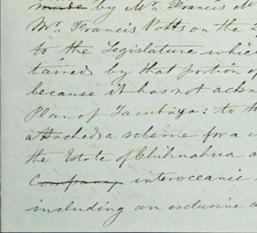 made by Mr. Francis M
Mr. Francis Potts on the 2
to the Legislature which
tained by that portion of
because it has not ackn
Plan of Tacubaya: to th
attached a scheme for a c
the Estate of Chihuahua a
Company interoceanic
including an exclusive